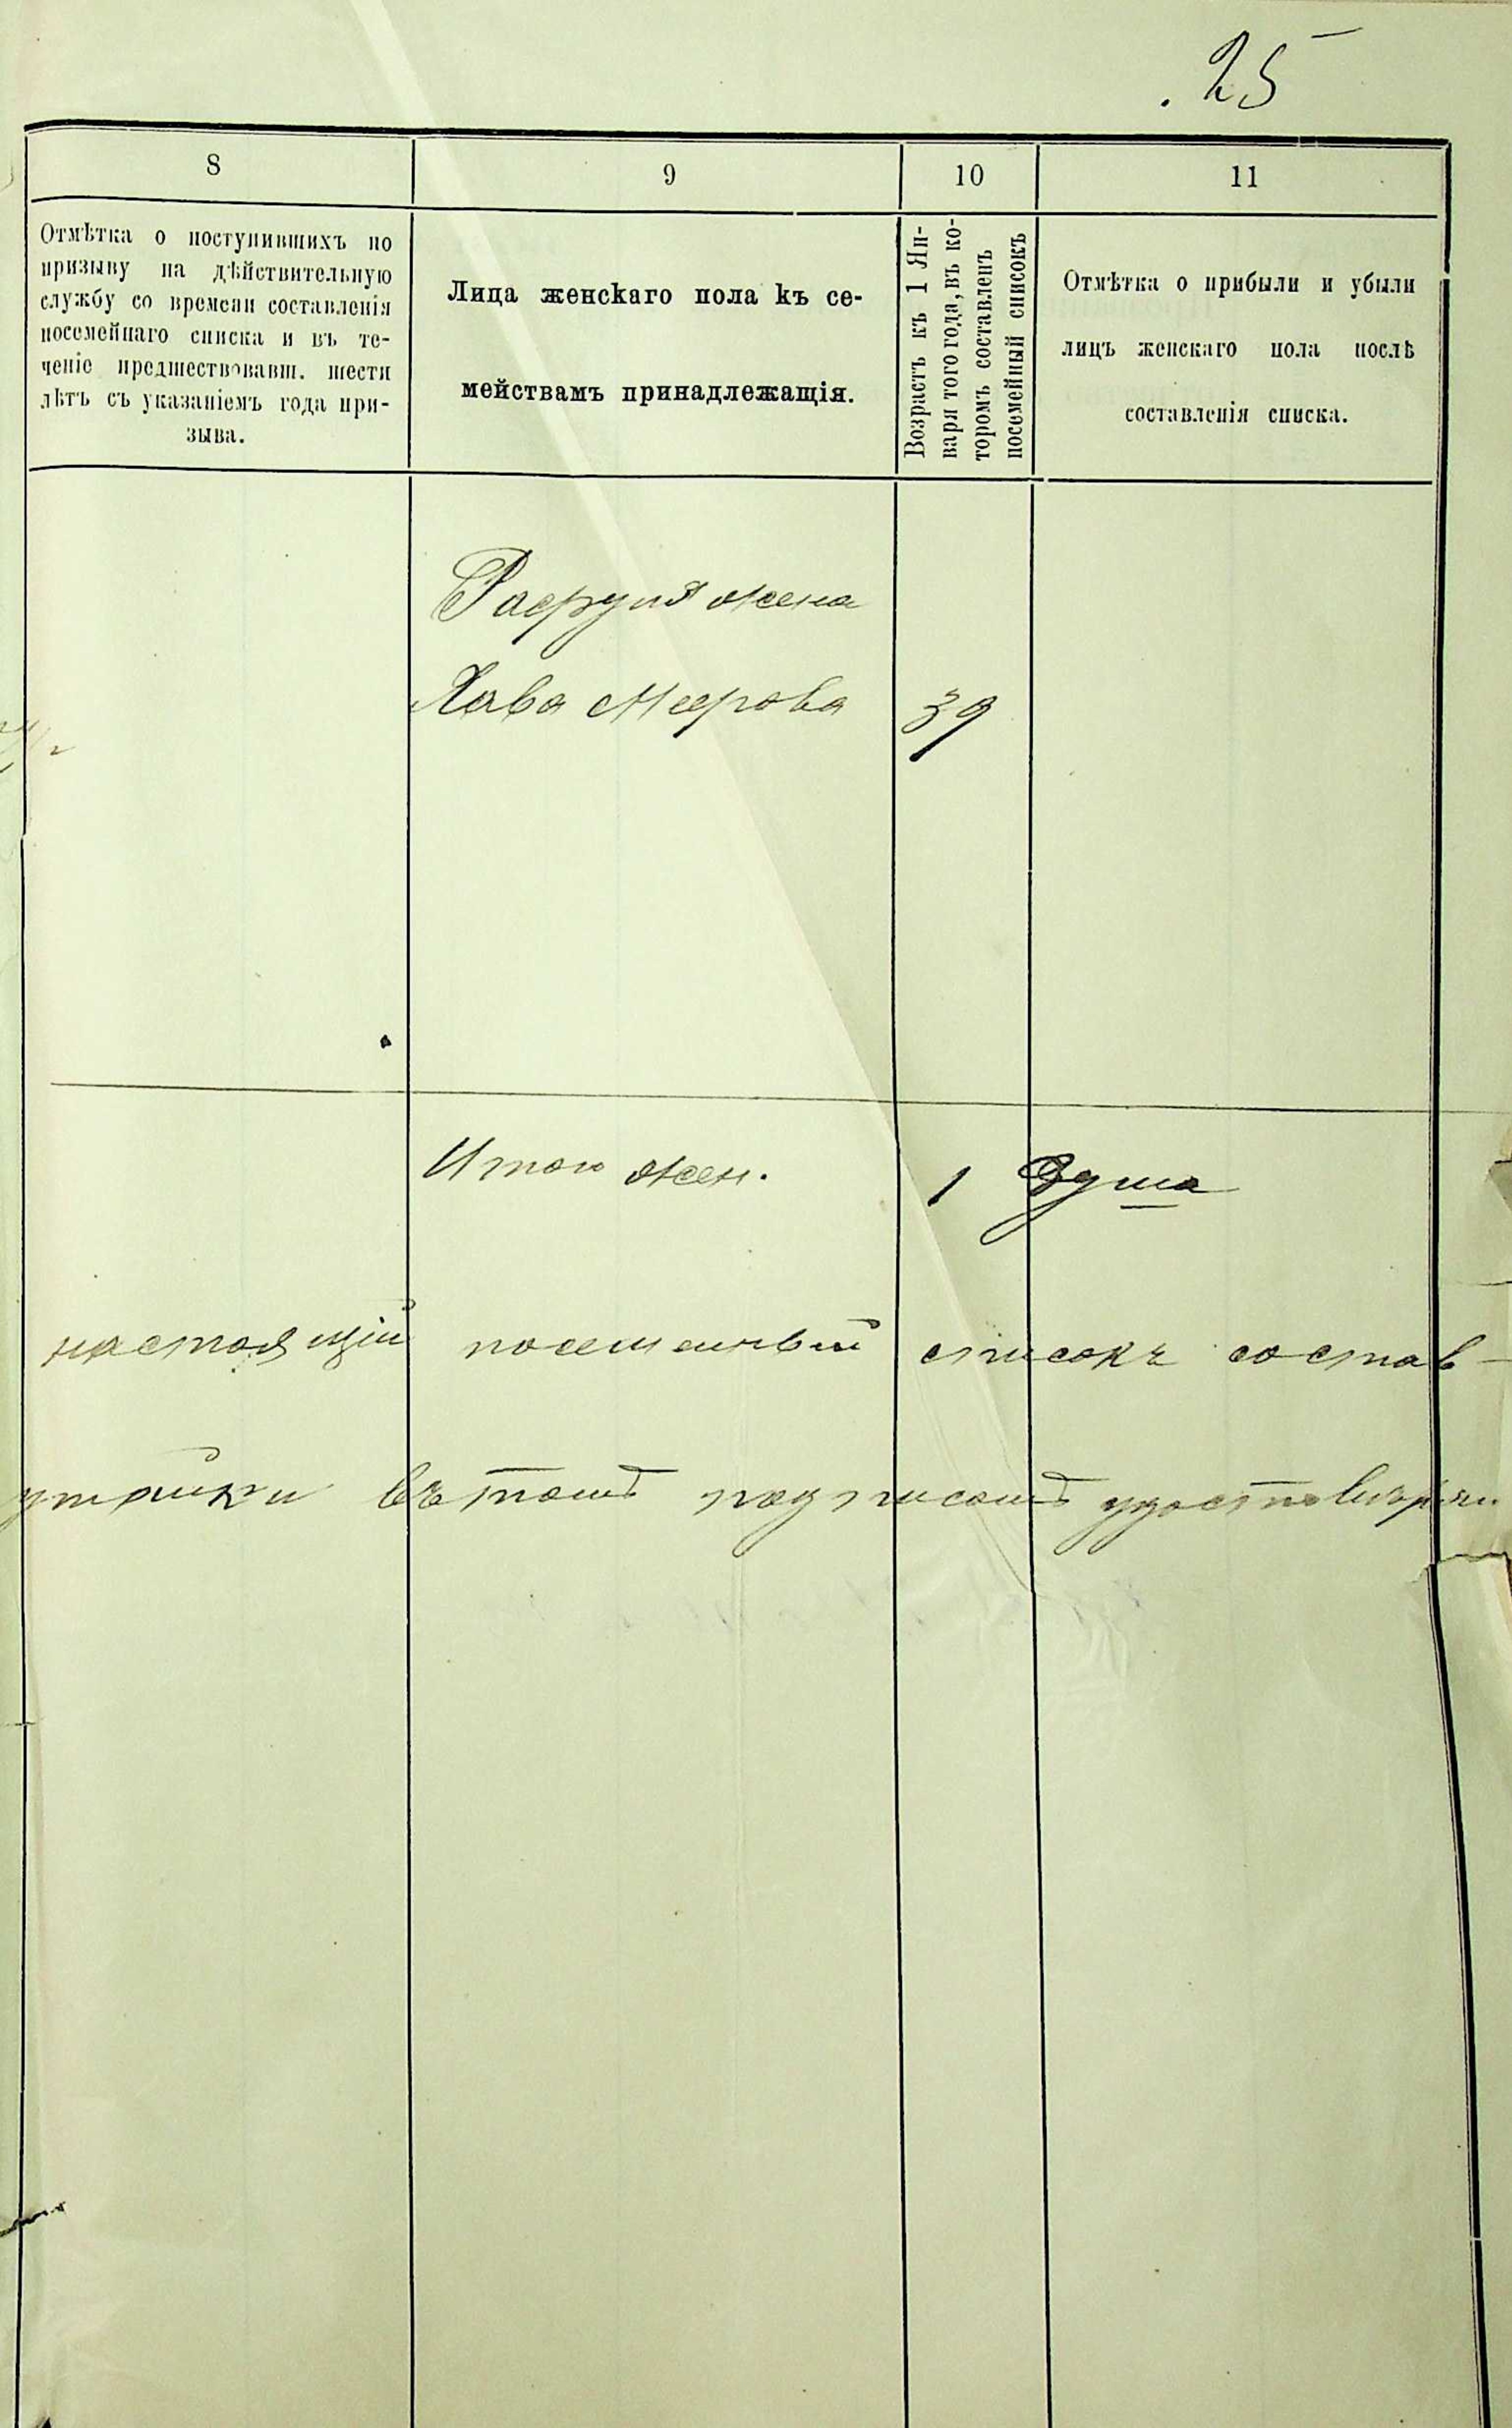 25
8
9
10
11
Отмѣтка о поступившихъ по
призыву на дѣйствительную
службу со времени составленія
посемейнаго списка и въ те-
ченіе предшествовавш. шести
лѣтъ съ указаніемъ года при-
зыва.
Лица женскаго пола къ се-
мействамъ принадлежащія.
Возрастъ къ 1 Ян-
варя того года, въ ко-
торомъ составленъ
посемейный списокъ
Отмѣтка о прибыли и убыли
лицъ женскаго пола послѣ
составленія списка.
жена
Хава Меерова 39
Итого жен. 1 душа
настоящій посемейный списокъ состав-
въ томъ подписомъ